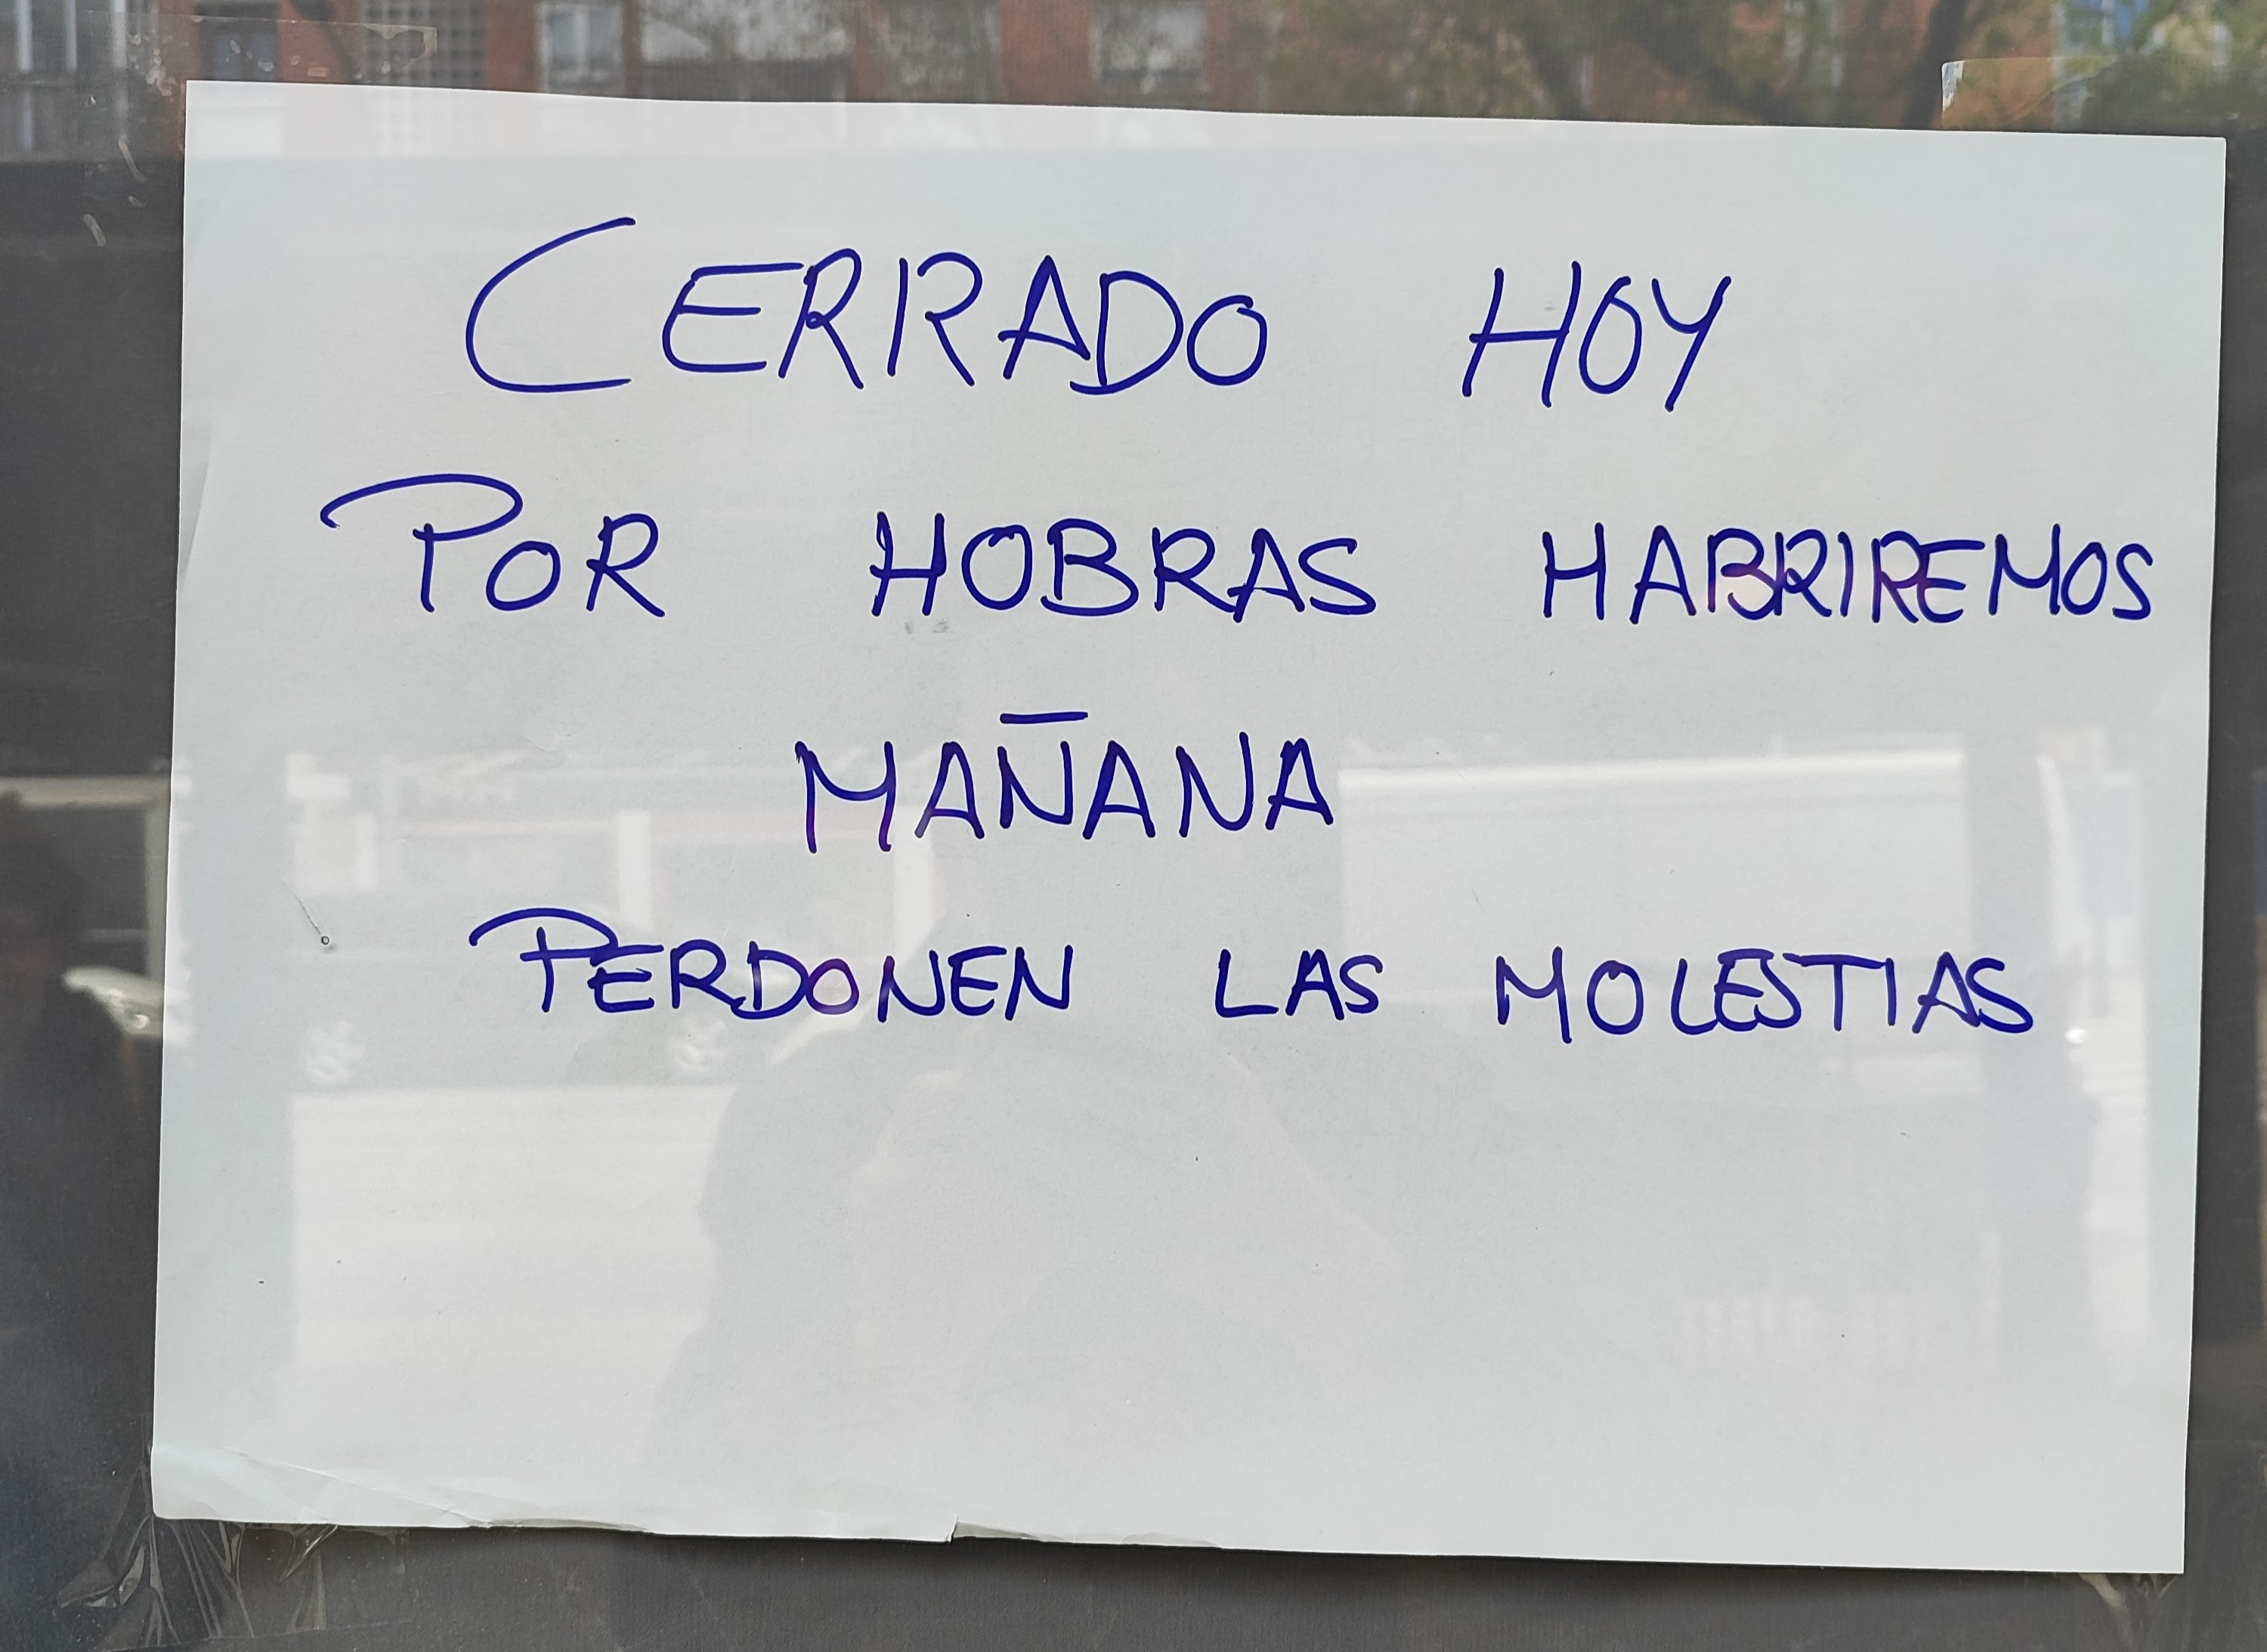 CERRADO HOY
POR HOBRAS HABRIREMOS
MAÑANA
PERDONEN LAS MOLESTIAS